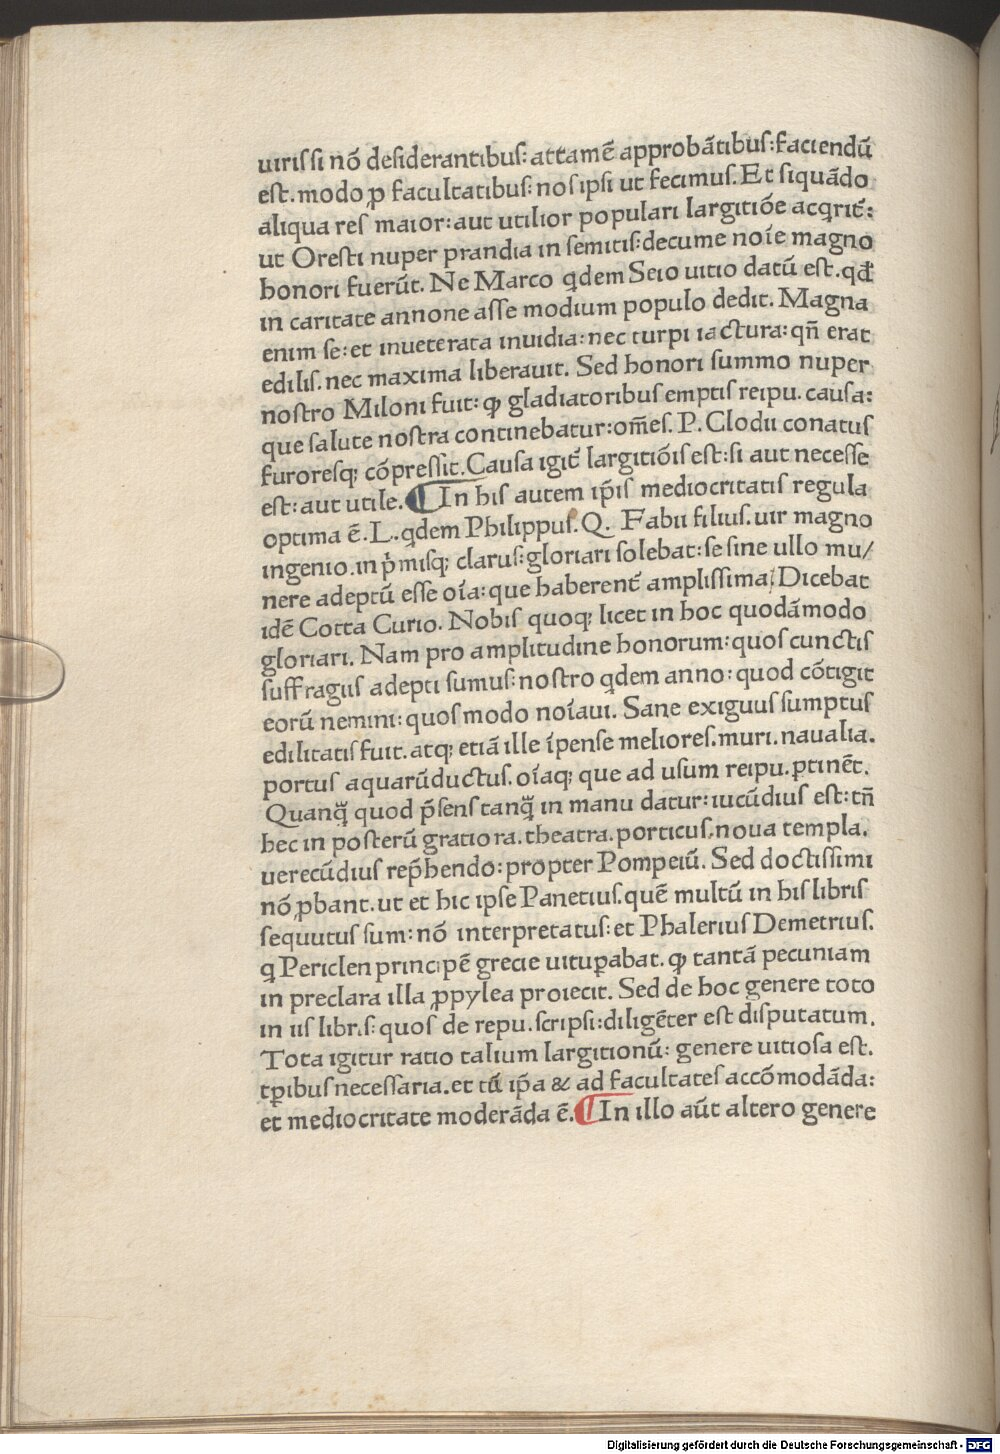 uiris si nō desiderantibus: attamē approbātibus: faciendū
est. modo ꝓ facultatibus: nos ipsi ut fecimus. Et siquādo
aliqua res maior: aut utilior populari largitiōe acqrit᷑:
ut Oresti nuper prandia in semitis: decume noīe magno
honori fuerūt. Ne Marco qdem Seio uitio datū est. qđ
in caritate annone asse modium populo dedit. Magna
enim se: et inueterata inuidia: nec turpi iactura: qn̄ erat
edilis. nec maxima liberauit. Sed honori summo nuper
nostro Miloni fuit: ꝙ gladiatoribus emptis reipu. causa:
que salute nostra continebatur: om̄es. P. Clodii conatus
furoresqꝫ cōpressit. Causa igit᷑ largitiōis est: si aut necesse
est: aut utile. ¶ In his autem ip̄is mediocritatis regula
optima ē. L. qdem Philippus. Q. Fabii filius. uir magno
ingenio. in p̄misqꝫ clarus: gloriari solebat: se sine ullo mu/
nere adeptū esse oīa: que haberent᷑ amplissima. Dicebat
idē Cotta Curio. Nobis quoqꝫ licet in hoc quodāmodo
gloriari. Nam pro amplitudine honorum: quos cunctis
suffragiis adepti sumus: nostro qdem anno: quod cōtigit
eorū nemini: quos modo noīaui. Sane exiguus sumptus
edilitatis fuit. atqꝫ etiā ille īpense meliores. muri. naualia.
portus aquarūductus. oīaqꝫ que ad usum reipu. ꝑtinēt.
Quanq̄ quod p̄sens tanq̄ in manu datur: iucūdius est: tn̄
hec in posterū gratiora. theatra. porticus. noua templa.
uerecūdius rep̄hendo: propter Pompeiū. Sed doctissimi
nō ꝓbant. ut et hic ipse Panetius. quē multū in his libris
sequutus sum: nō interpretatus: et Phalerius Demetrius.
q Periclen principē grecie uituꝑabat. ꝙ tantā pecuniam
in preclara illa ꝓpylea proiecit. Sed de hoc genere toto
in iis libris: quos de repu. scripsi: diligēter est disputatum.
Tota igitur ratio talium largitionū: genere uitiosa est.
tꝑibus necessaria. et tū ip̄a & ad facultates accōmodāda:
et mediocritate moderāda ē. ¶ In illo aūt altero genere
Digitalisierung gefördert durch die Deutsche Forschungsgemeinschaft - DFG